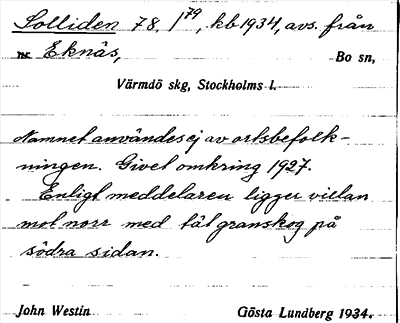 Solliden 78. 1/79, kb 1934, avs. från
nr Eknäs, Bo sn,
Värmdö skg, Stockholms l.
Namnet användes ej av ortsbefolk-
ningen. Givet omkring 1927.
Enligt meddelaren ligger villan
mot norr med tät granskog på
södra sidan.
John Westin Gösta Lundberg 1934.